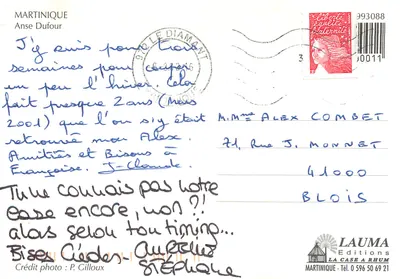 MARTINIQUE
Anse Dufour
J'y suis pour trois
semaines pour couper
un peu l'hiver. Cela
fait presque 2 ans (Mars
2001) que l'on s'y était
retrouvé mon Alex.
Amitiés et Bisous à
Françoise. J-Claude.
Tu ne connais pas notre
case encore, non ?!
alors selon ton timing...
Bises
STEPHANE
Crédit photo : P. Gilloux
LE DIAMANT
liberté
égalité
fraternité
993088
3
00011
A.M.Me ALEX COMBET
71, Rue J. MONNET
41000
BLOIS
LAUMA
Editions
LA CASE A RHUM
MARTINIQUE Tel : 0 596 50 69 21